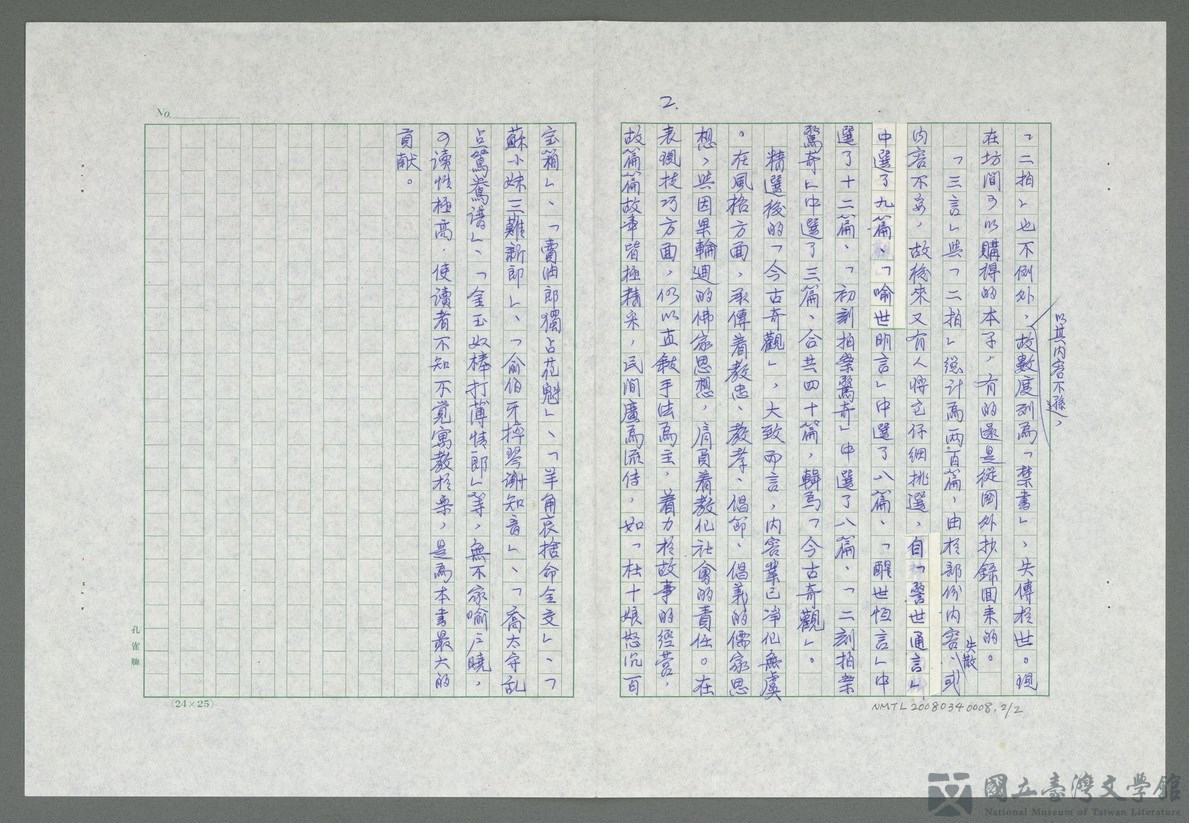 2.
以其內容不雅，
「二拍」也不例外，故數度列為「禁書」、失傳於世。現
在坊間可以購得的本子，有的還是從國外抄錄回來的。
「三言」與「二拍」總計為兩百篇，由於部份內容、或
失散
內容不妥，故後來又有人將它仔細挑選，自「警世通言」
中選了九篇、「喻世明言」中選了八篇、「醒世恆言」中
選了十二篇、「初刻拍案驚奇」中選了八篇、「二刻拍案
驚奇」中選了三篇、合共四十篇，輯為「今古奇觀」。
精選後的「今古奇觀」，大致而言，內容業已淨化無虞
。在風格方面，承傳着教忠、教孝、倡節、倡義的儒家思
想，與因果輪迴的佛家思想，肩負着教化社會的責任。在
表現技巧方面，仍以直敍手法為主，着力於故事的經營，
故篇篇故事皆極精采，民間廣為流傳，如「杜十娘怒沉百
宝箱」、「賣油郎獨占花魁」、「羊角哀捨命全交」、「
蘇小妹三難新郎」、「俞伯牙摔琴謝知音」、「喬太守乱
点鴛鴦譜」、「金玉奴棒打薄情郎」等，無不家喻户曉，
可讀性極高，使讀者不知不覚寓教於樂，是為本書最大的
貢献。
No.
孔雀牌
(24×25)
NMTL20080340008，2/2
國立臺灣文學館
National Museum of Taiwan Literature